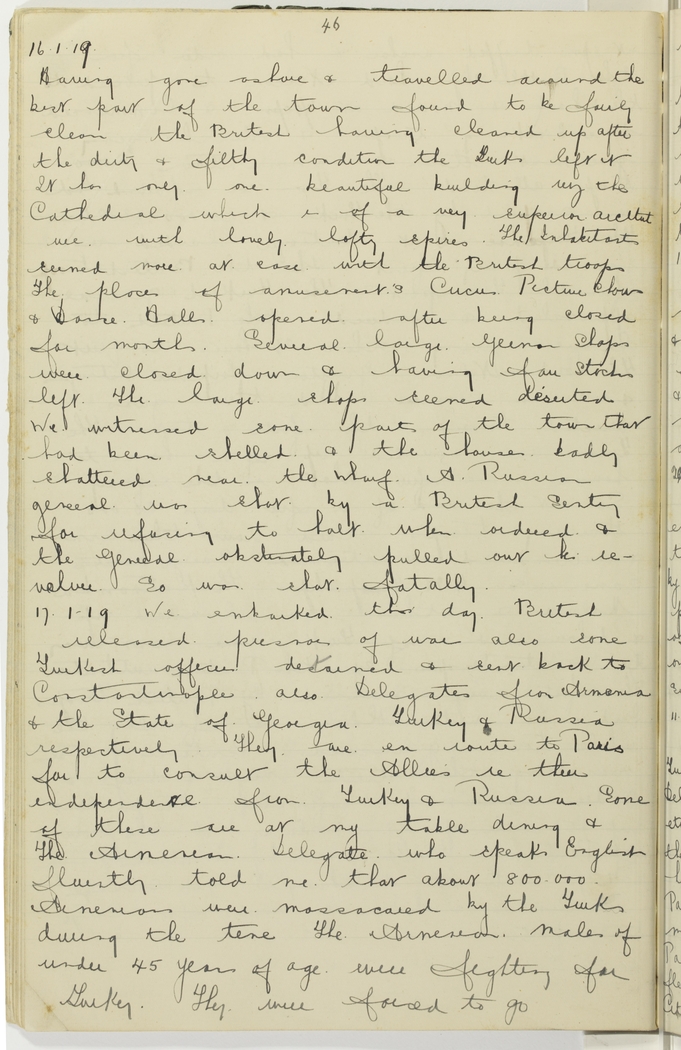 46
16.1.19.
Having gone ashore & travelled around the
best part of the town found to be fairly
clean the British having cleaned up after
the dirty & filthy condition the Turks left it
It has only one beautiful building viz the
Cathedral which is of a very superior architect
ure. with lovely lofty spires. The Inhabitants
seemed more at ease with the British troops
The places of amusement.s Circus Picture Shows
& Dance. Halls. opened. after being closed
for months. Several. large. German Shops
were closed down & having few Stocks
left. The large shops seemed deserted
We witnessed some parts of the town that
had been shelled. & the houses badly
shattered near. the Wharf. A. Russian
general was shot. by a British Sentry
for refusing to halt. when ordered &
the General obstinately pulled out his re-
volver. So was shot. fatally.
17.1-19 We embarked this day. British
released prisoners of war also some
Turkish officers detained & sent back to
Constantinople. also Delegates from Armenia
& the State of Georgia. Turkey & Russia
respectively. They. are en route to Paris
for to consult the Allies re their
independence from. Turkey & Russia. Some
of these are at my table dining &
The Armenian. Delegate. who speaks English
fluently told me that about 800.000.
Armenians were. massacared by the Turks
during the time The. Armenian. males of
under 45 years of age. were fighting for
Turkey. They were forced to go